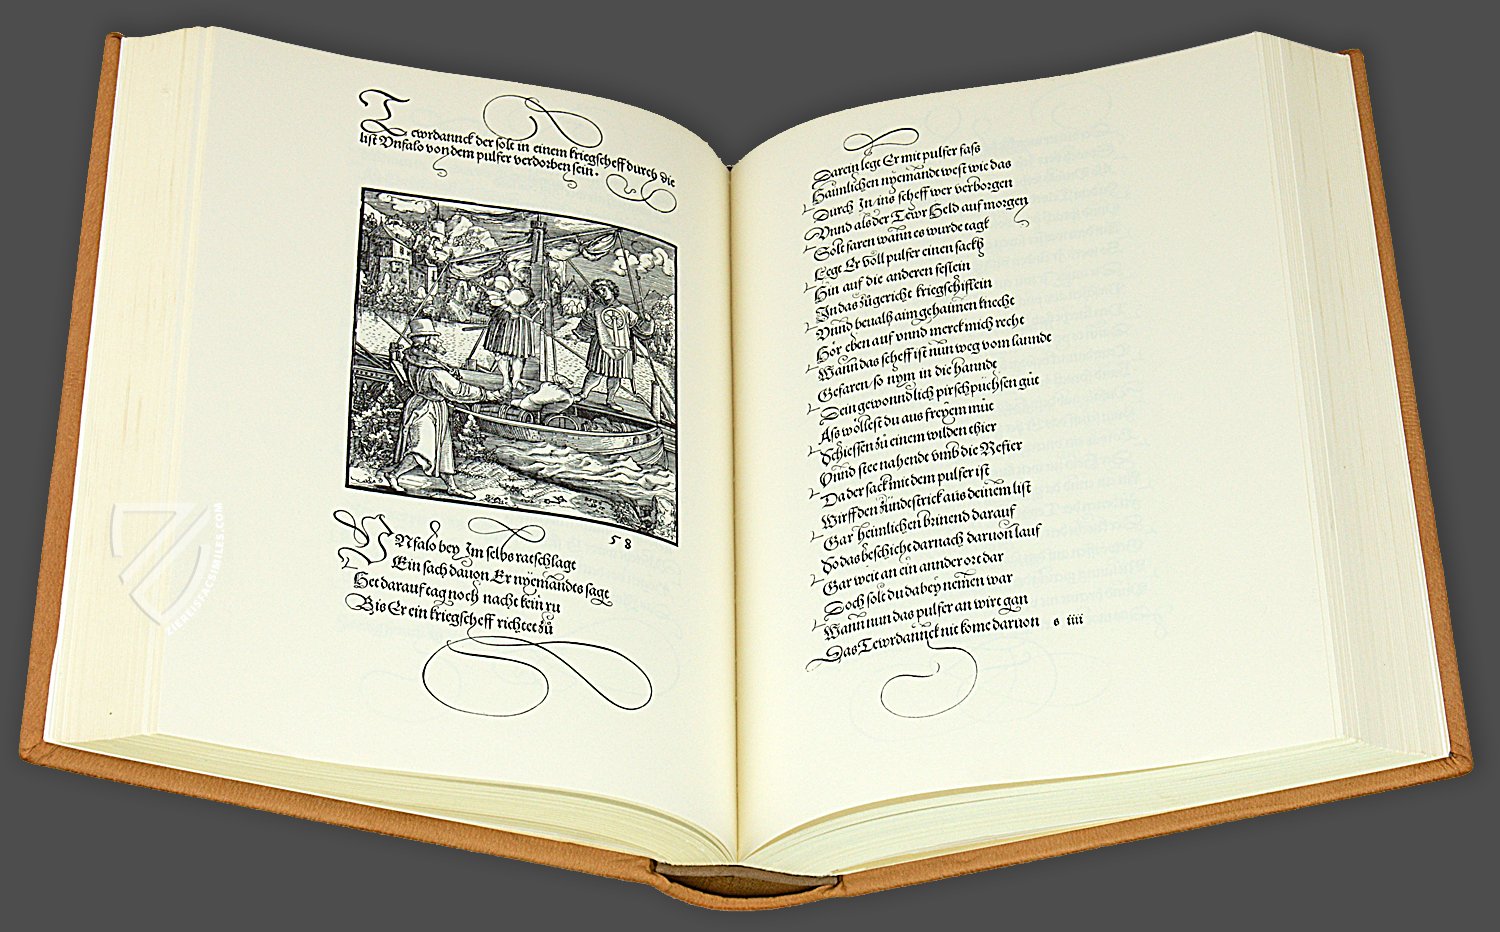 Tewrdannck der solt in einem kriegscheff durch die
list Vnfalo von dem pulfer verdorben sein.
58
VNfalo bey Im selbs ratschlagt
Ein sach dauon Er nyemandts sagt
Het darauf tag noch nacht kein ru
Bis Er ein kriegscheff richtet zů
Darein legt Er mit pulfer fass
Haimlichen nyemandt west wie das
Durch In ins scheff wer verborgen
Vnnd als der Tewr Held auf morgen
Solt faren wann es wurde tagt
Legt Er völl pulfer einen sackh
Hin auf die anderen festein
In das zůgericht kriegschiflein
Vnnd beualh aim gehaimen knecht
Hör eben auf vnnd merck mich recht
Wann das scheff ist nun weg vom lannde
Gefaren so nym in die hannde
Dein gewonndlich pirschpüchsen gůt
Als wöllest du aus freyem můt
Schiessen zů einem wilden thier
Vnnd stee nahendt vmb die Refier
Da der sack mit dem pulfer ist
Wirff den zündtstrick aus deinem list
Gar heimlichen brinend darauf
So das beschicht darnach daruon lauf
Gar weit an ein annder ort dar
Doch solt du dabey nemen war
Wann nun das pulfer an wirt gan
Das Tewrdannck nit kome daruon s iiii
ZIEREIS FACSIMILES.COM